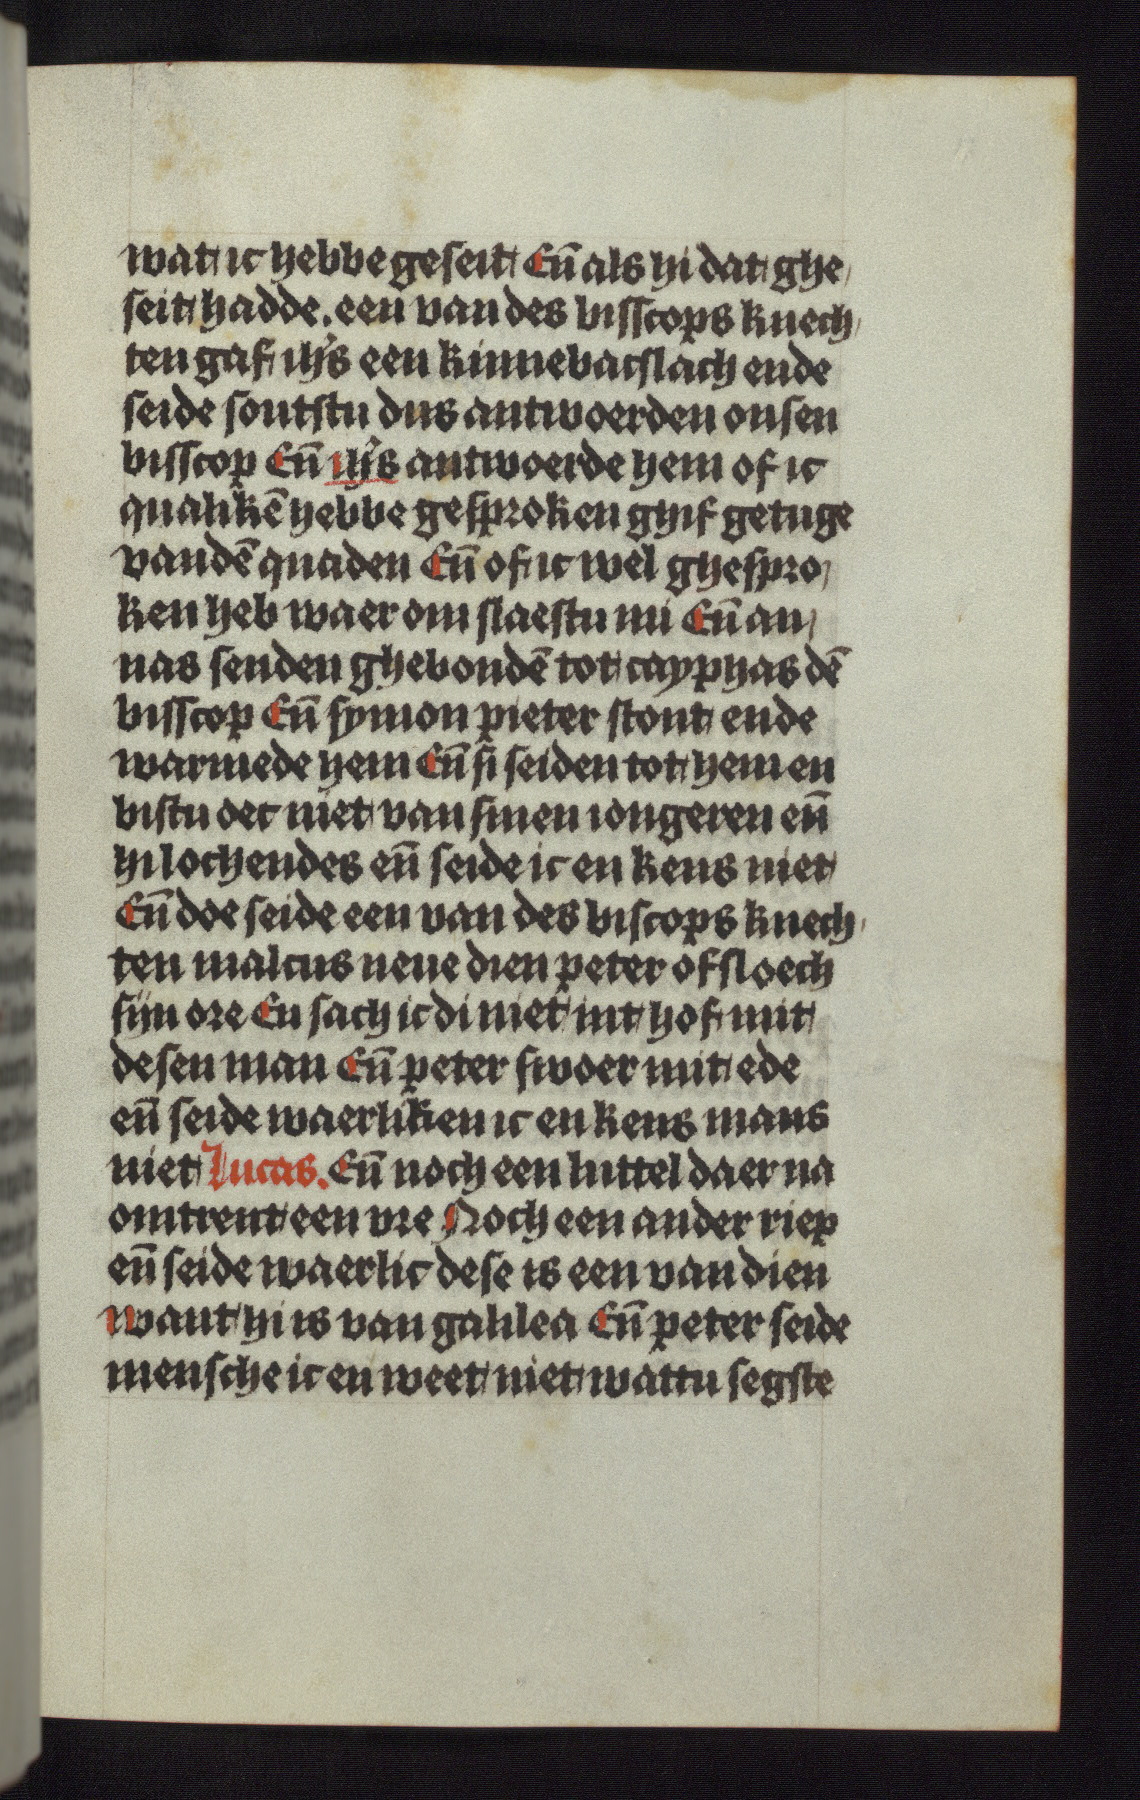 wat ic hebbe geseit Eñ als hi dat ghe
seit hadde. een van des bisscops knech
ten gaf ihs̃ een kinnebacslach ende
seide soutstu dus antwoerden onsen
bisscop Eñ ihs̃ antwoerde hem of ic
qualikē hebbe gesproken ghif getuge
vandē quaden Eñ of ic wel ghespro
ken heb waer om slaestu mi Eñ an
nas senden ghebondē tot cayphas dē
bisscop Eñ symon pieter stont ende
warmede hem Eñ si seiden tot hem en
bistu oec niet van sinen iongeren eñ
hi lochendes eñ seide ic en kens niet
Eñ doe seide een van des biscops knech
ten malcus neue dien peter of sloech
sijn ore En sach ic di niet int hof mit
desen man Eñ peter swoer mit ede
eñ seide waerliken ic en kens mans
niet Lucas. Eñ noch een luttel daer na
omtrent een vre Noch een ander riep
eñ seide waerlic dese is een van dien
want hi is van galilea Eñ peter seide
mensche ic en weet niet wattu segste